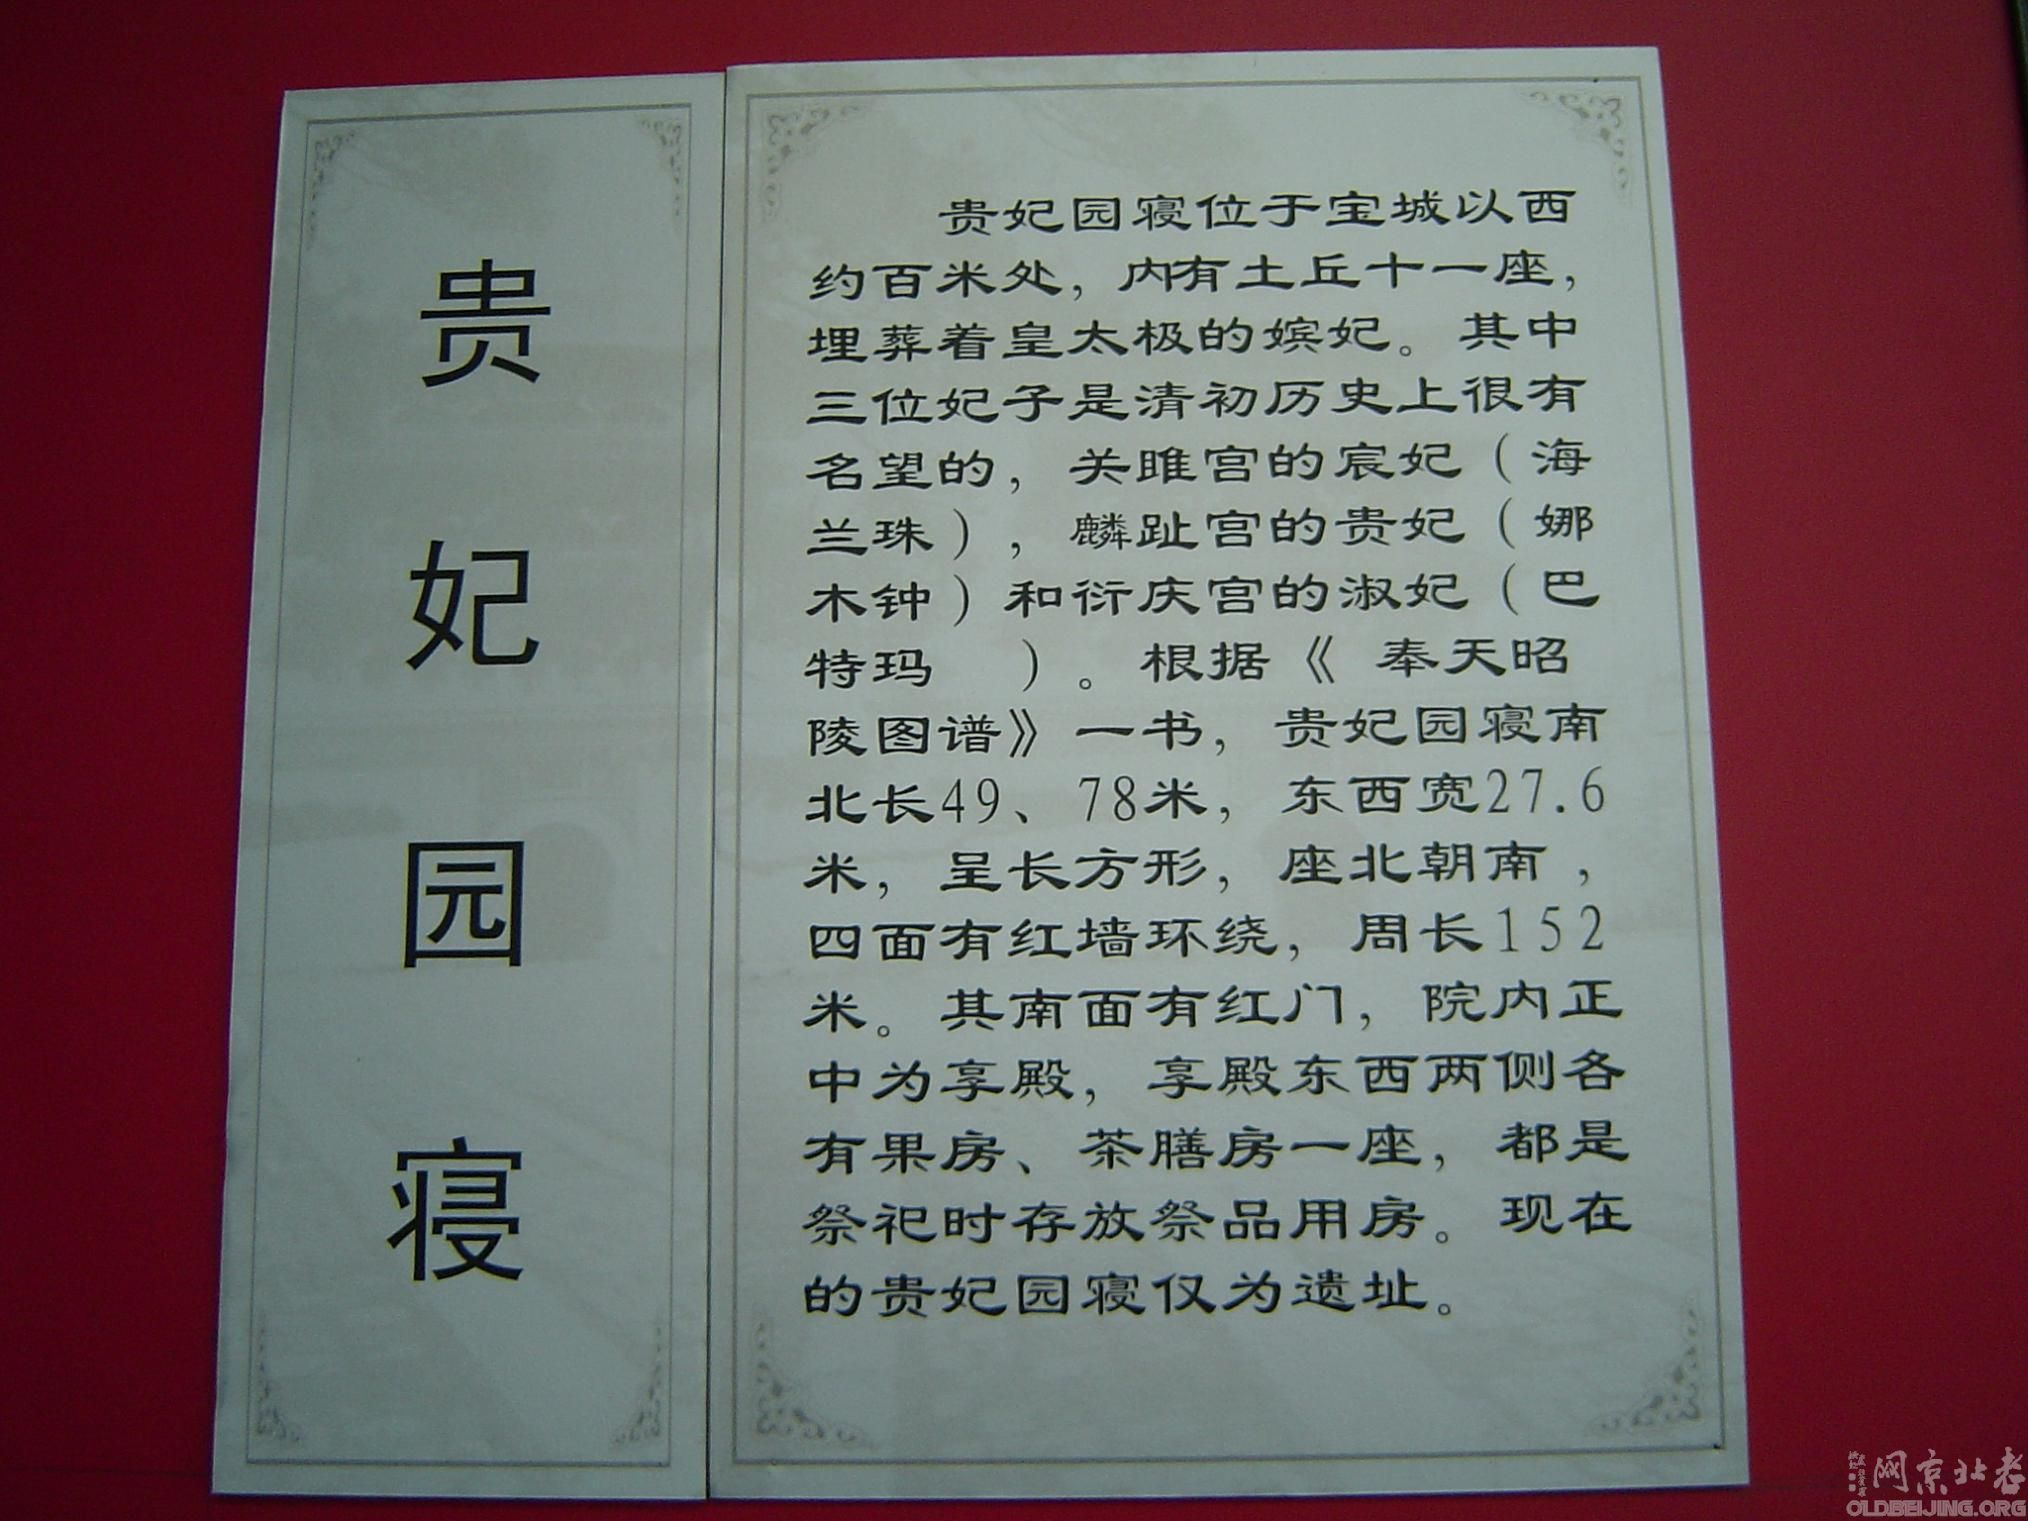 贵妃园寝
贵妃园寝位于宝城以西
约百米处，内有土丘十一座，
埋葬着皇太极的嫔妃。其中
三位妃子是清初历史上很有
名望的，关雎宫的宸妃（海
兰珠），麟趾宫的贵妃（娜
木钟）和衍庆宫的淑妃（巴
特玛　）。根据《 奉天昭
陵图谱》一书，贵妃园寝南
北长49、78米，东西宽27.6
米，呈长方形，座北朝南，
四面有红墙环绕，周长152
米。其南面有红门，院内正
中为享殿，享殿东西两侧各
有果房、茶膳房一座，都是
祭祀时存放祭品用房。现在
的贵妃园寝仅为遗址。
老北京网
OLDBEIJING.ORG